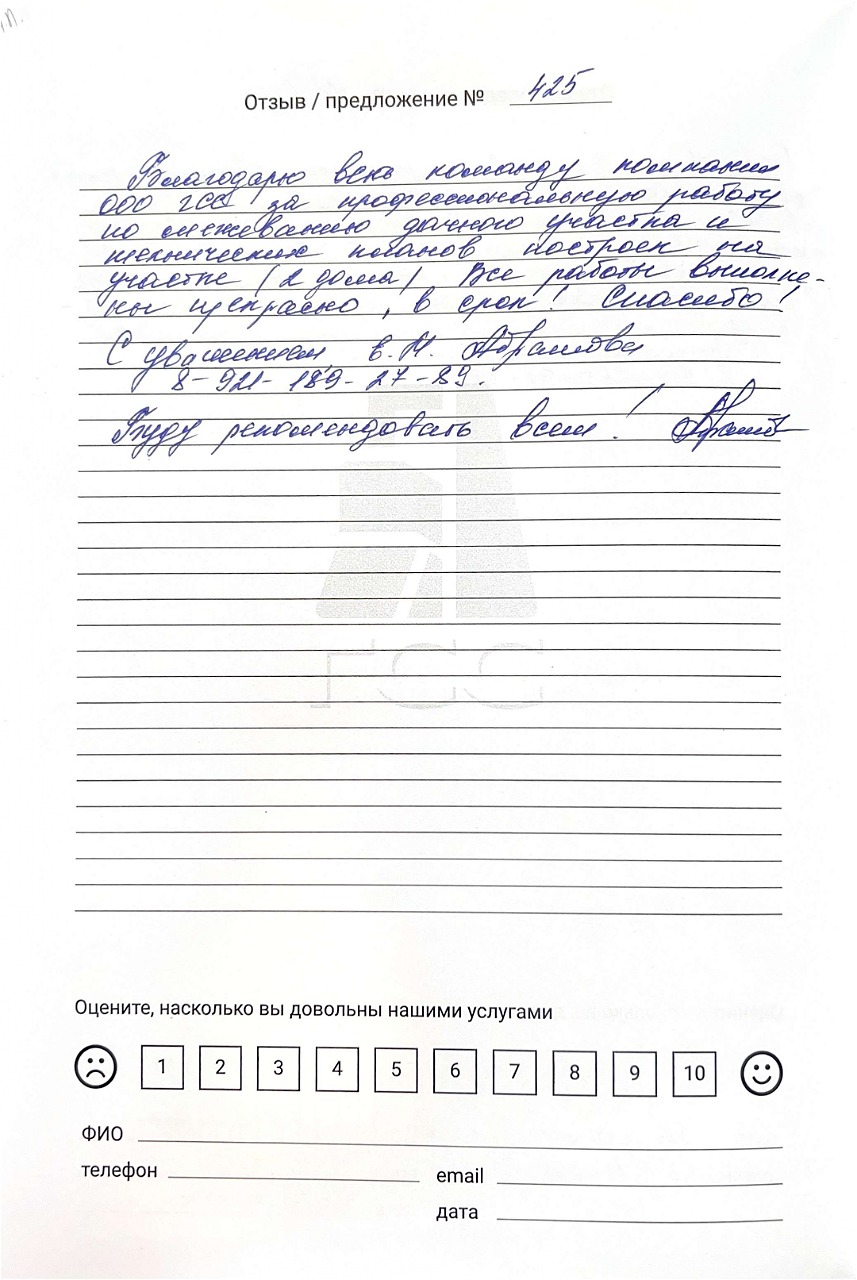 Отзыв / предложение № 425
Благодарю весь команду компании
ООО ГСС за профессиональную работу
по межеванию дачного участка и
технических планов построек на
участке (2 дома) Все работы выполне-
ны прекрасно, в срок! Спасибо!
С уважением Е.Н. Абрамова
8-921-189-27-89.
Буду рекомендовать всем!
ГСС
Оцените, насколько вы довольны нашими услугами
1 2 3 4 5 6 7 8 9 10
ФИО
телефон
email
дата